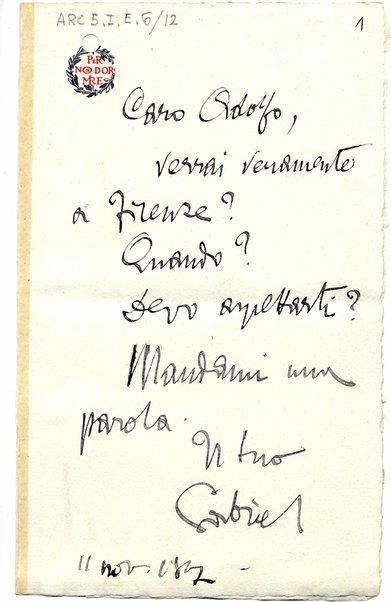 ARC 5. I. E. 6/12
1
PER
NON DOR
MIRE
Caro Adolfo,
verrai veramente
a Firenze?
Quando?
Devo aspettarti?
Mandami una
parola.
Il tuo
Gabriel
11 nov.